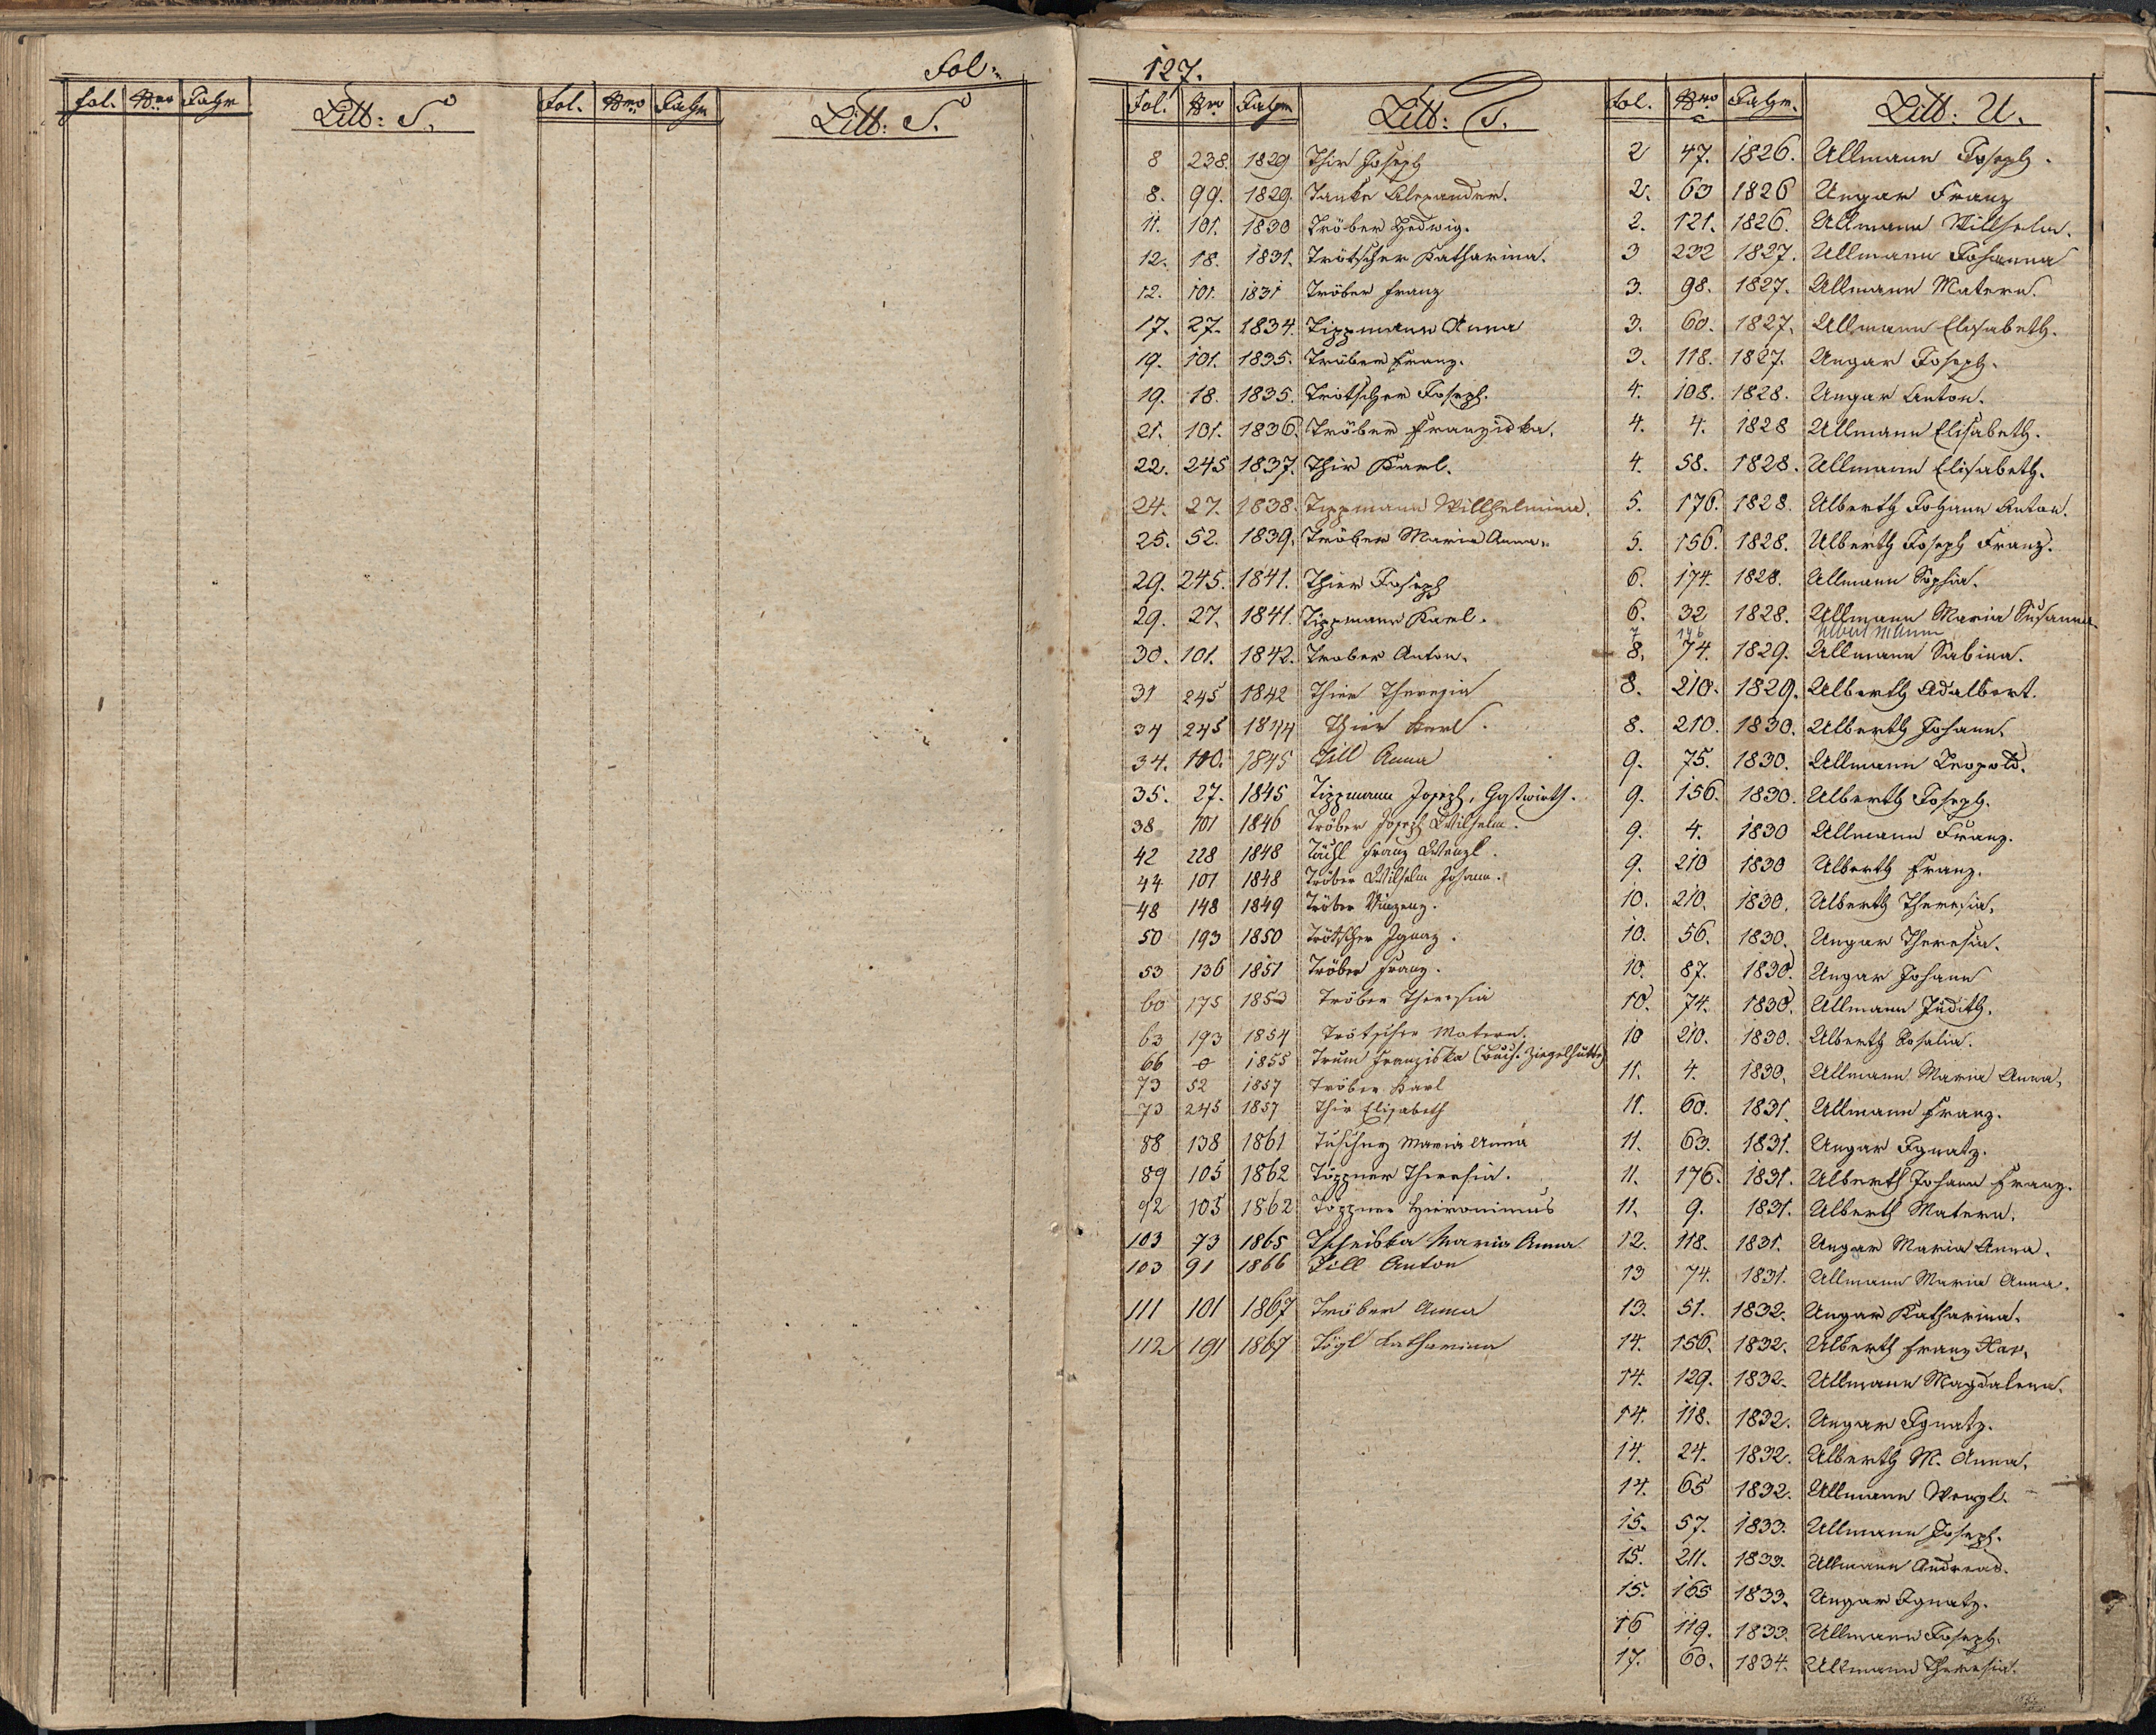 Fol:
fol. Nro Jahr Litt: S. fol. Nro Jahr Litt: S.
127.
Fol. Nro Jahr Litt: T.
8 238. 1829 Thir Joseph
8. 99. 1829. Tanke Alexander.
11. 101. 1830 Tröber Hedwig.
12. 18. 1831. Trötscher Katharina.
12. 101. 1831 Tröber Franz
17. 27. 1834. Tippmann Anna
19. 101. 1835. Tröber Franz.
19. 18. 1835. Trötscher Joseph.
21. 101. 1836. Tröber Franziska.
22. 245 1837. Thir Karl.
24. 27. 1838. Tippmann Willhelmina.
25. 52. 1839. Tröber Maria Anna.
29. 245. 1841. Thier Joseph
29. 27. 1841. Tippmann Karl.
30. 101. 1842. Trober Anton.
31 245 1842 Thier Theresia
34 245 1844 Thier Karl.
34. 100. 1845 Till Anna
35. 27. 1845 Tippmann Joseph, Gastwirth.
38 101 1846 Tröber Joseph Wilhelm.
42 228 1848 Franz Wenzl.
44 101 1848 Tröber Wilhelm Johann.
48 148 1849 Tröber Vinzenz.
50 193 1850 Trötscher Ignaz.
53 136 1851 Tröber Franz.
60 175 1853 Tröber Theresia
63 193 1854 Trötscher Matern.
66 0 1855 Trum Franziska Ziegelhütte)
73 52 1857 Tröber Karl
73 245 1857 Thir Elisabeth
88 138 1861 Tuschny Maria Anna
89 105 1862 Töppner Theresia.
92 105 1862 Töppner Hieronimus
103 73 1865 Tscheiska Maria Anna
103 91 1866 Till Anton
111 101 1867 Tröber Anna
112 191 1867 Tögl Katharina
fol. Nro Jahr. Litt: U.
2 47. 1826. Ullmann Joseph.
2. 63 1826 Ungar Franz
2. 121. 1826. Ullmann Willhelm.
3 232 1827. Ullmann Johanna
3. 98. 1827. Ullmann Matern.
3. 60. 1827. Ullmann Elisabeth.
3. 118. 1827. Ungar Joseph.
4. 108. 1828. Ungar Anton.
4. 4. 1828 Ullmann Elisabeth.
4. 58. 1828. Ullmann Elisabeth.
5. 176. 1828. Ulberth Johann Anton.
5. 156. 1828. Ulberth Joseph Franz.
6. 174. 1828. Ullmann Sophia.
6. 32 1828. Ullmann Maria Susanna
7 146 Ulbert
8. 74. 1829. Ullmann Sabina.
8. 210. 1829. Ulberth Adalbert.
8. 210. 1830. Ulberth Johann.
9. 75. 1830. Ullmann Leopold.
9. 156. 1830. Ulberth Joseph.
9. 4. 1830 Ullmann Franz.
9. 210 1830 Ulberth Franz.
10. 210. 1830. Ulberth Theresia.
10. 56. 1830. Ungar Theresia.
10. 87. 1830. Ungar Johann
10. 74. 1830. Ullmann Judith.
10 210. 1830. Ulberth Rosalia.
11. 4. 1830. Ullmann Maria Anna.
11. 60. 1831. Ullmann Franz.
11. 63. 1831. Ungar Ignatz.
11. 176. 1831. Ulberth Johann Franz.
11. 9. 1831. Ulberth Matern.
12. 118. 1831. Ungar Maria Anna.
13 74. 1831. Ullmann Maria Anna.
13. 51. 1832. Ungar Katharina.
14. 156. 1832. Ulberth Franz Xav.
14. 129. 1832. Ullmann Magdalena.
14. 118. 1832. Ungar Ignatz.
14. 24. 1832. Ulberth M. Anna.
14. 65 1832. Ullmann Wenzl.
15. 57. 1833. Ullmann Joseph.
15. 211. 1833. Ullmann Andreas.
15. 165 1833. Ungar Ignatz.
16 119. 1833. Ullmann Joseph.
17. 60. 1834. Ullmann Theresia.